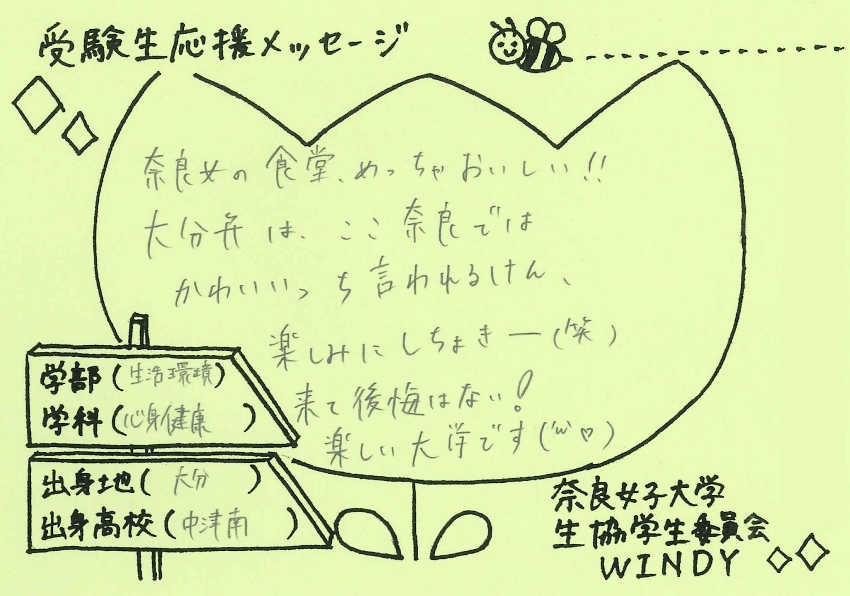 受験生応援メッセージ
奈良女の食堂、めっちゃおいしい!!
大分弁は、ここ奈良では
かわいいっち言われるけん、
楽しみにしちょきー(笑)
来て後悔はない!
楽しい大学です('ω'♡)
学部(生活環境)
学科(心身健康)
出身地(大分)
出身高校(中津南)
奈良女子大学
生協学生委員会
WINDY